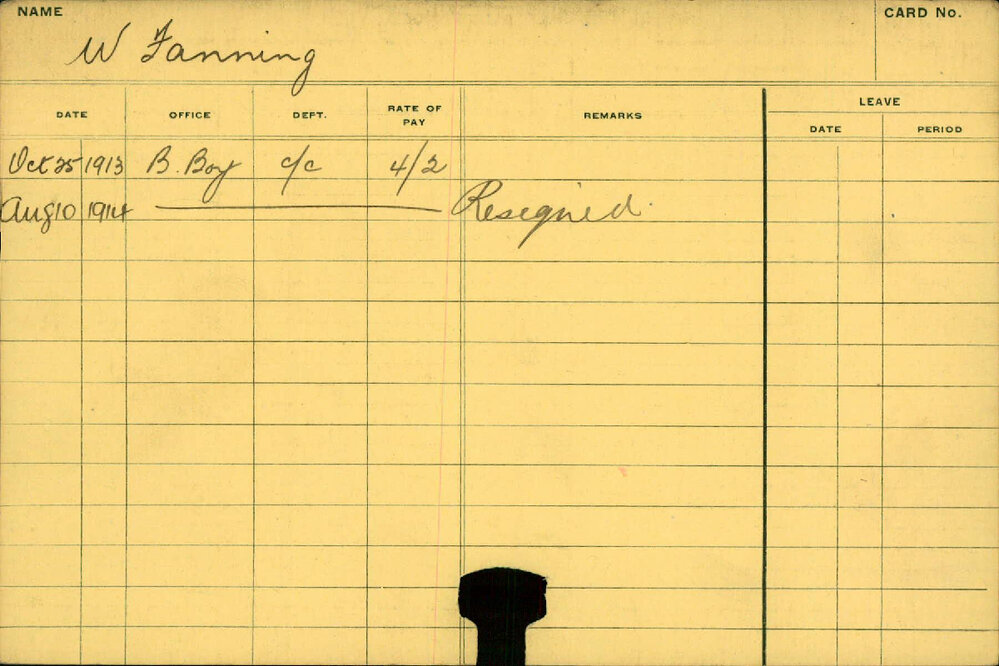 NAME CARD No.
W Fanning
DATE OFFICE DEPT. RATE OF PAY REMARKS LEAVE
DATE PERIOD
Oct 25 1913 B. Boy c/c 4/2
Aug 10 1914 Resigned.